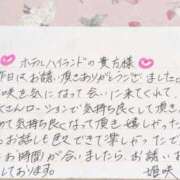 ホテルハイランドの貴方様
昨日はお誘い頂きありがとうございました
咲き気になって会いに来てくれて
くさんローションで気持ち良くして頂き
めて気持ち良くなって嬉しかった
お話しも色々できて楽しかったです
お時間が合いましたら、お誘いお
しております。
姫咲